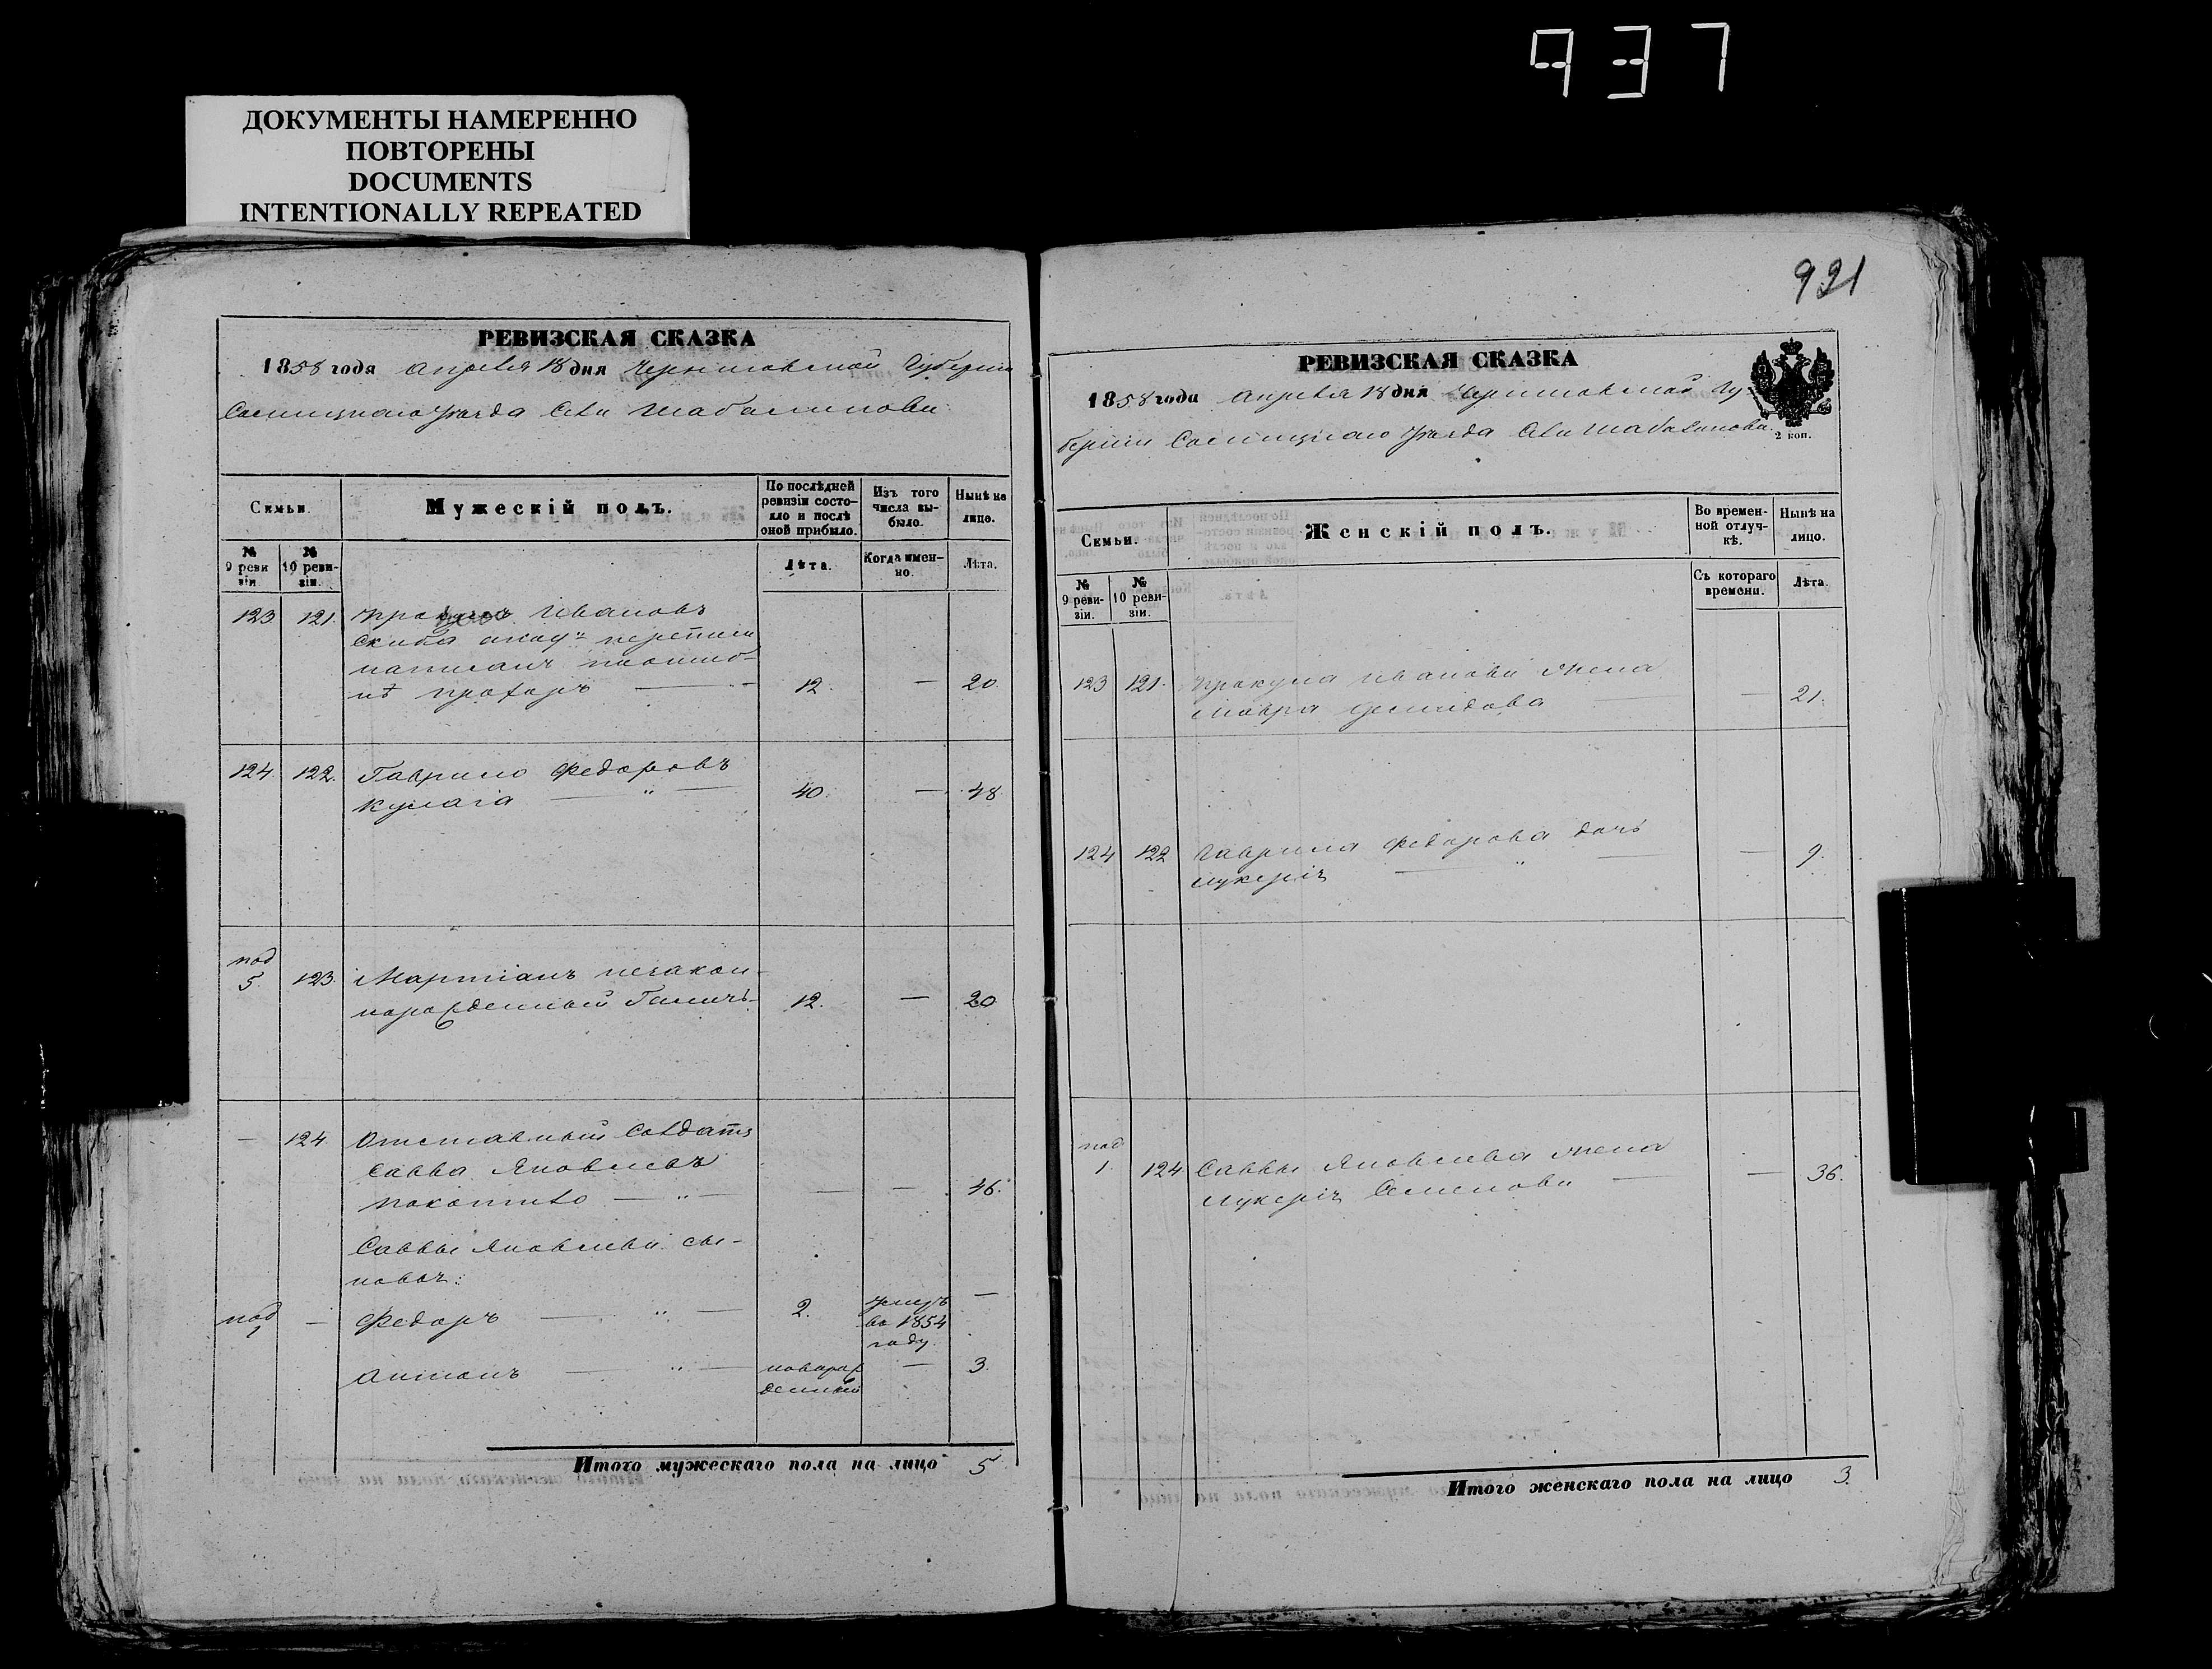 937
ДОКУМЕНТЫ НАМЕРЕННО
ПОВТОРЕНЫ
DOCUMENTS
INTENTIONALLY REPEATED
РЕВИЗСКАЯ СКАЗКА
1858 года апреля 18 дня Черниговской Губернии
Сосницкаго уезда Села Шабалинова
Семьи.
Мужескій полъ.
По послѣдней ревизіи состояло и послѣ оной прибыло.
Изъ того числа выбыло.
Нынѣ на лицо.
№ 9 ревизіи.
№ 10 ревизіи.
Лѣта.
Когда именно.
Лѣта.
123 121. Ивановъ
Скиба
написанъ
Прохоръ — 12. — 20.
124 122. Гаврило Федоровъ
Кулага — " — 40. — 48.
под 5. 123. Мартіанъ незакон-
норожденный 12. — 20
— 124. Отставный Солдатъ
Савва Яковлевъ
— " — — — 46.
Саввы Яковлева сы-
новья:
под 1 — Федоръ — " — 2. умеръ во 1854 году. —
Антонъ — " — новорожденный — 3.
Итого мужескаго пола на лицо 5
921
РЕВИЗСКАЯ СКАЗКА
1858 года апреля 18 дня Черниговской Гу-
берніи Сосницкаго уезда Села Шабалинова.
2 коп.
Семьи.
Женскій полъ.
Во временной отлучкѣ.
Нынѣ на лицо.
№ 9 ревизіи.
№ 10 ревизіи.
Съ котораго времени.
Лѣта.
123 121. Прокула Иванова жена
Мавра Демидова — — 21.
124 122 Гаврила Федорова дочь
Лукерія — " — — 9.
под 1. 124 Саввы Яковлева жена
Лукерія Семенова — — 36.
Итого женскаго пола на лицо 3.